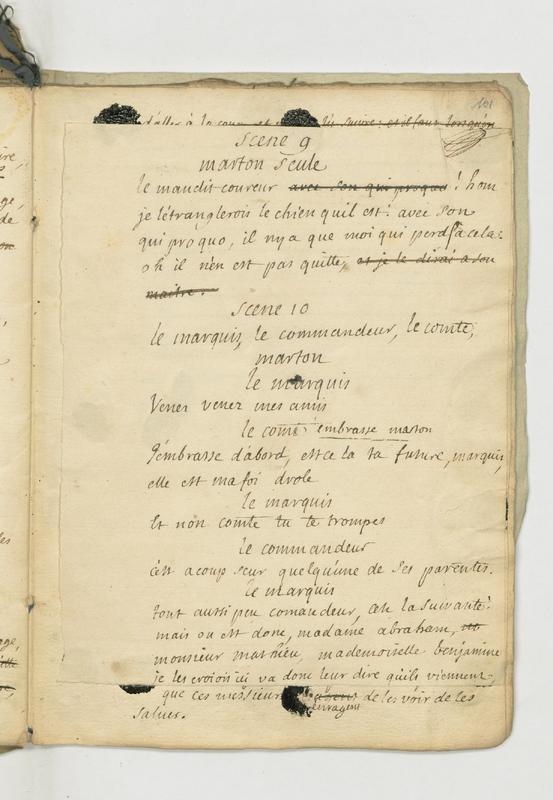 101
d'aller à la cour et lui suivre; et il faut lorsqu'on
Scene 9
marton seule
le maudit coureur avec son qui proquo ! hom
je l'étranglerois le chien quil est! avec son
qui proquo, il ny a que moi qui perd a cela:
oh il n'en est pas quitte, et je le dirai a son
maitre.
Scene 10
le marquis, le commandeur, le comte,
marton
le marquis
Venez venez mes amis
le comte embrasse marton
J'embrasse d'abord, est ce la ta future, marquis,
elle est ma foi drole
le marquis
Et non comte tu te trompes
le commandeur
c'est a coup seur quelqu'une de ses parentes.
le marquis
tout aussi peu comandeur, c'est la suivante:
mais ou est donc, madame abraham,
monsieur mathieu, mademoiselle benjamine
je les croiois ici va donc leur dire qu'ils viennent,
que ces messieurs enragent de les voir de les
saluer.